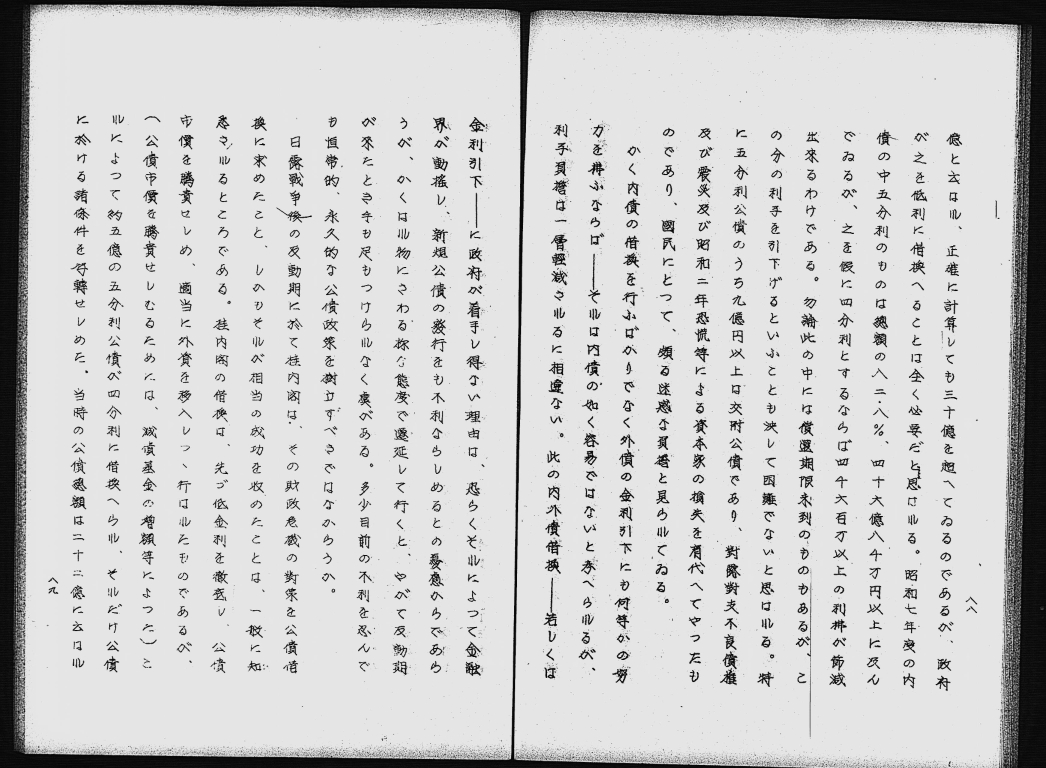 億と云はれ、正確に計算しても三十億を超へてゐるのであるが、政府
が之を低利に借換へることは全く必要だと思はれる。昭和七年度の内
債の中五分利のものは総額の八二・八%、四十六億八千万円以上に及ん
でゐるが、之を仮に四分利とするならば四千六百万以上の利拂が節減
出来るわけである。勿論此の中には償還期限未到のものもあるが、こ
の分の利子を引下げるといふことも決して困難でないと思はれる。特
に五分利公債のうち九億円以上は交附公債であり、對露對支不良債権
及び震災及び昭和二年恐慌等による資本家の損失を肩代へてやつたも
のであり、國民にとつて、頗る迷惑な負擔と見られてゐる。
かく内債の借換を行ふばかりでなく外債の金利引下にも何等かの努
力を拂ふならば――それは内債の如く容易ではないと考へられるが、
利子負擔は一層軽減されるに相違ない。此の内外債借換――若しくは
八八
金利引下――に政府が着手し得ない理由は、恐らくそれによつて金融
界が動揺し、新規公債の発行をも不利ならしめるとの憂慮からであら
うが、かくは れ物にさわる様な態度で遷延して行くと、やがて反動期
が来たときも足もつけられなく虞がある。多少目前の不利を忍んで
も恒常的、永久的な公債政策を樹立すべきではなからうか。
日露戦争後の反動期に於て桂内閣は、その財政危機の對策を公債借
換に求めたこと、しかもそれが相当の成功を収めたことは、一般に知
悉さるるところである。桂内閣の借換は、先づ低金利を徹底し、公債
市價を騰貴せしめ、適当に外資を移入しつゝ行はれたものであるが、
(公債市價を騰貴せしむるためには、減債基金の増額等によつた)こ
れによつて約五億の五分利公債が四分利に借換へられ、それだけ公債
に於ける諸條件を好轉せしめた。当時の公債総額は二十二億に云はれ
八九